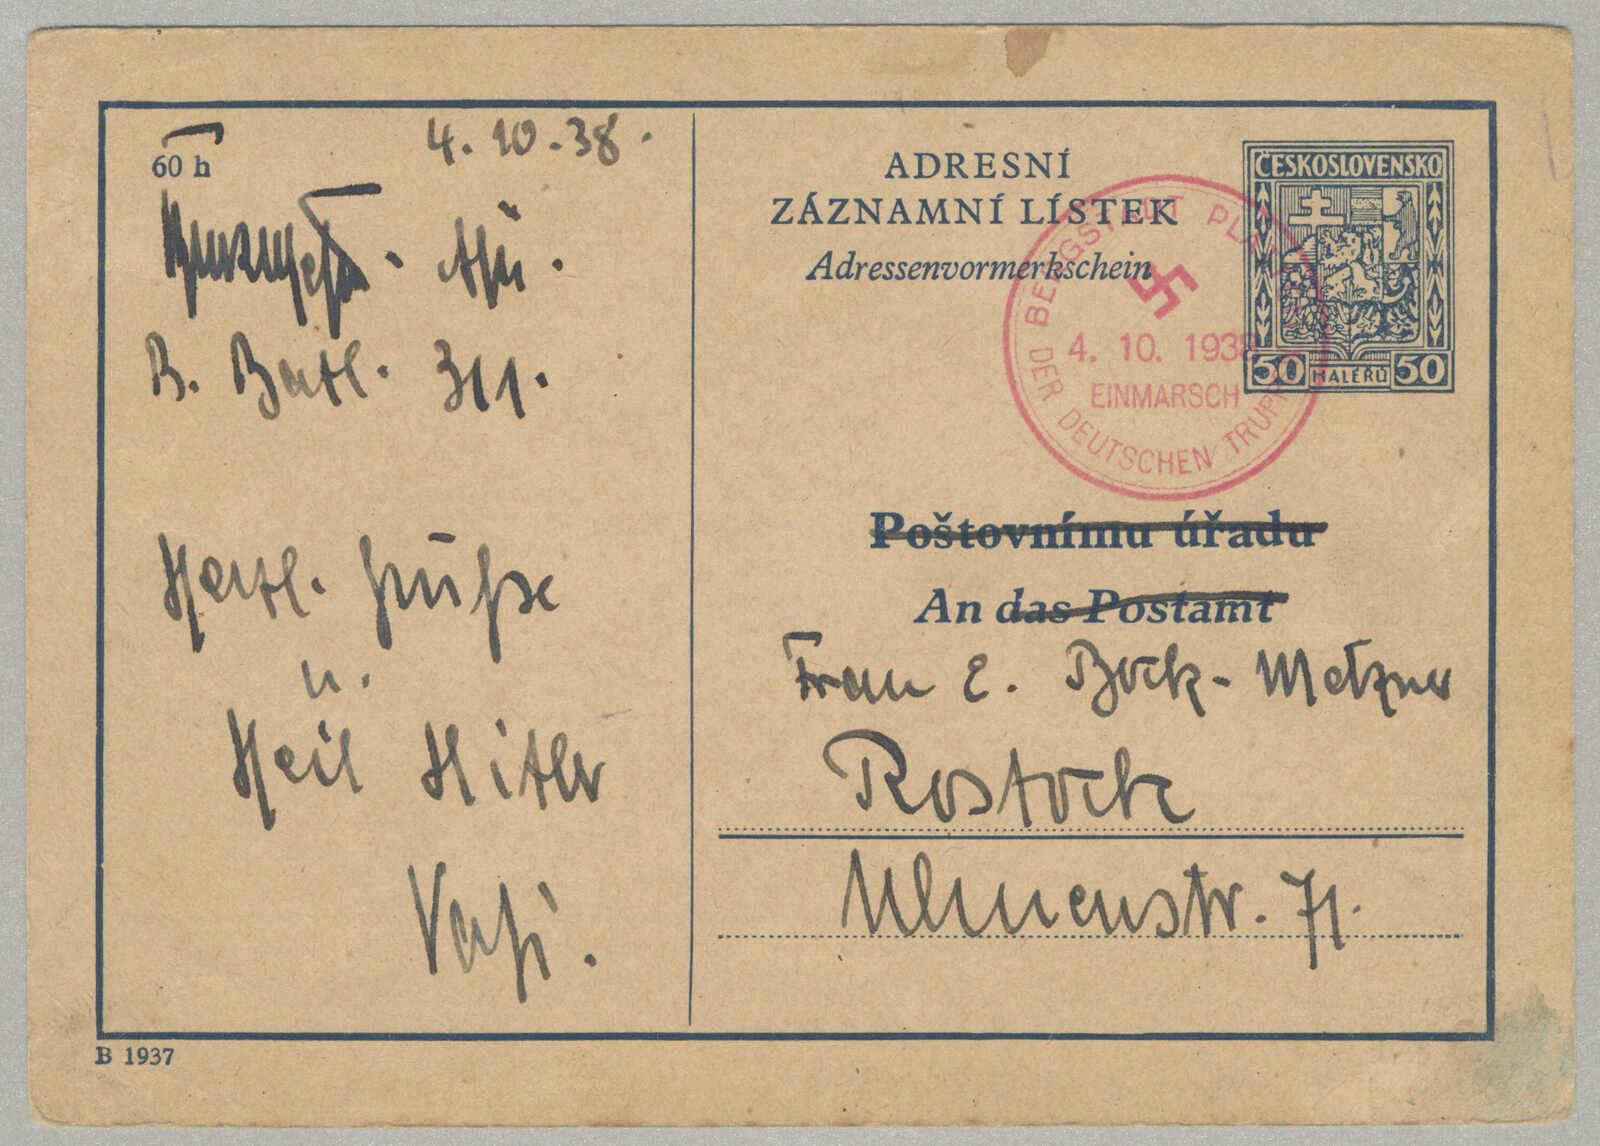 60 h
4. 10. 38.
B. Batl. 311.
Herzl. Grüße
u.
Heil Hitler
B 1937
ADRESNÍ
ZÁZNAMNÍ LÍSTEK
Adressenvormerkschein
ČESKOSLOVENSKO
50 HALÉŘŮ 50
BERGSTADT
4. 10. 1938
EINMARSCH
DER DEUTSCHEN
Poštovnímu úřadu
An das Postamt
Frau E. Bock-Metzner
Rostock
Ulmenstr. 71.